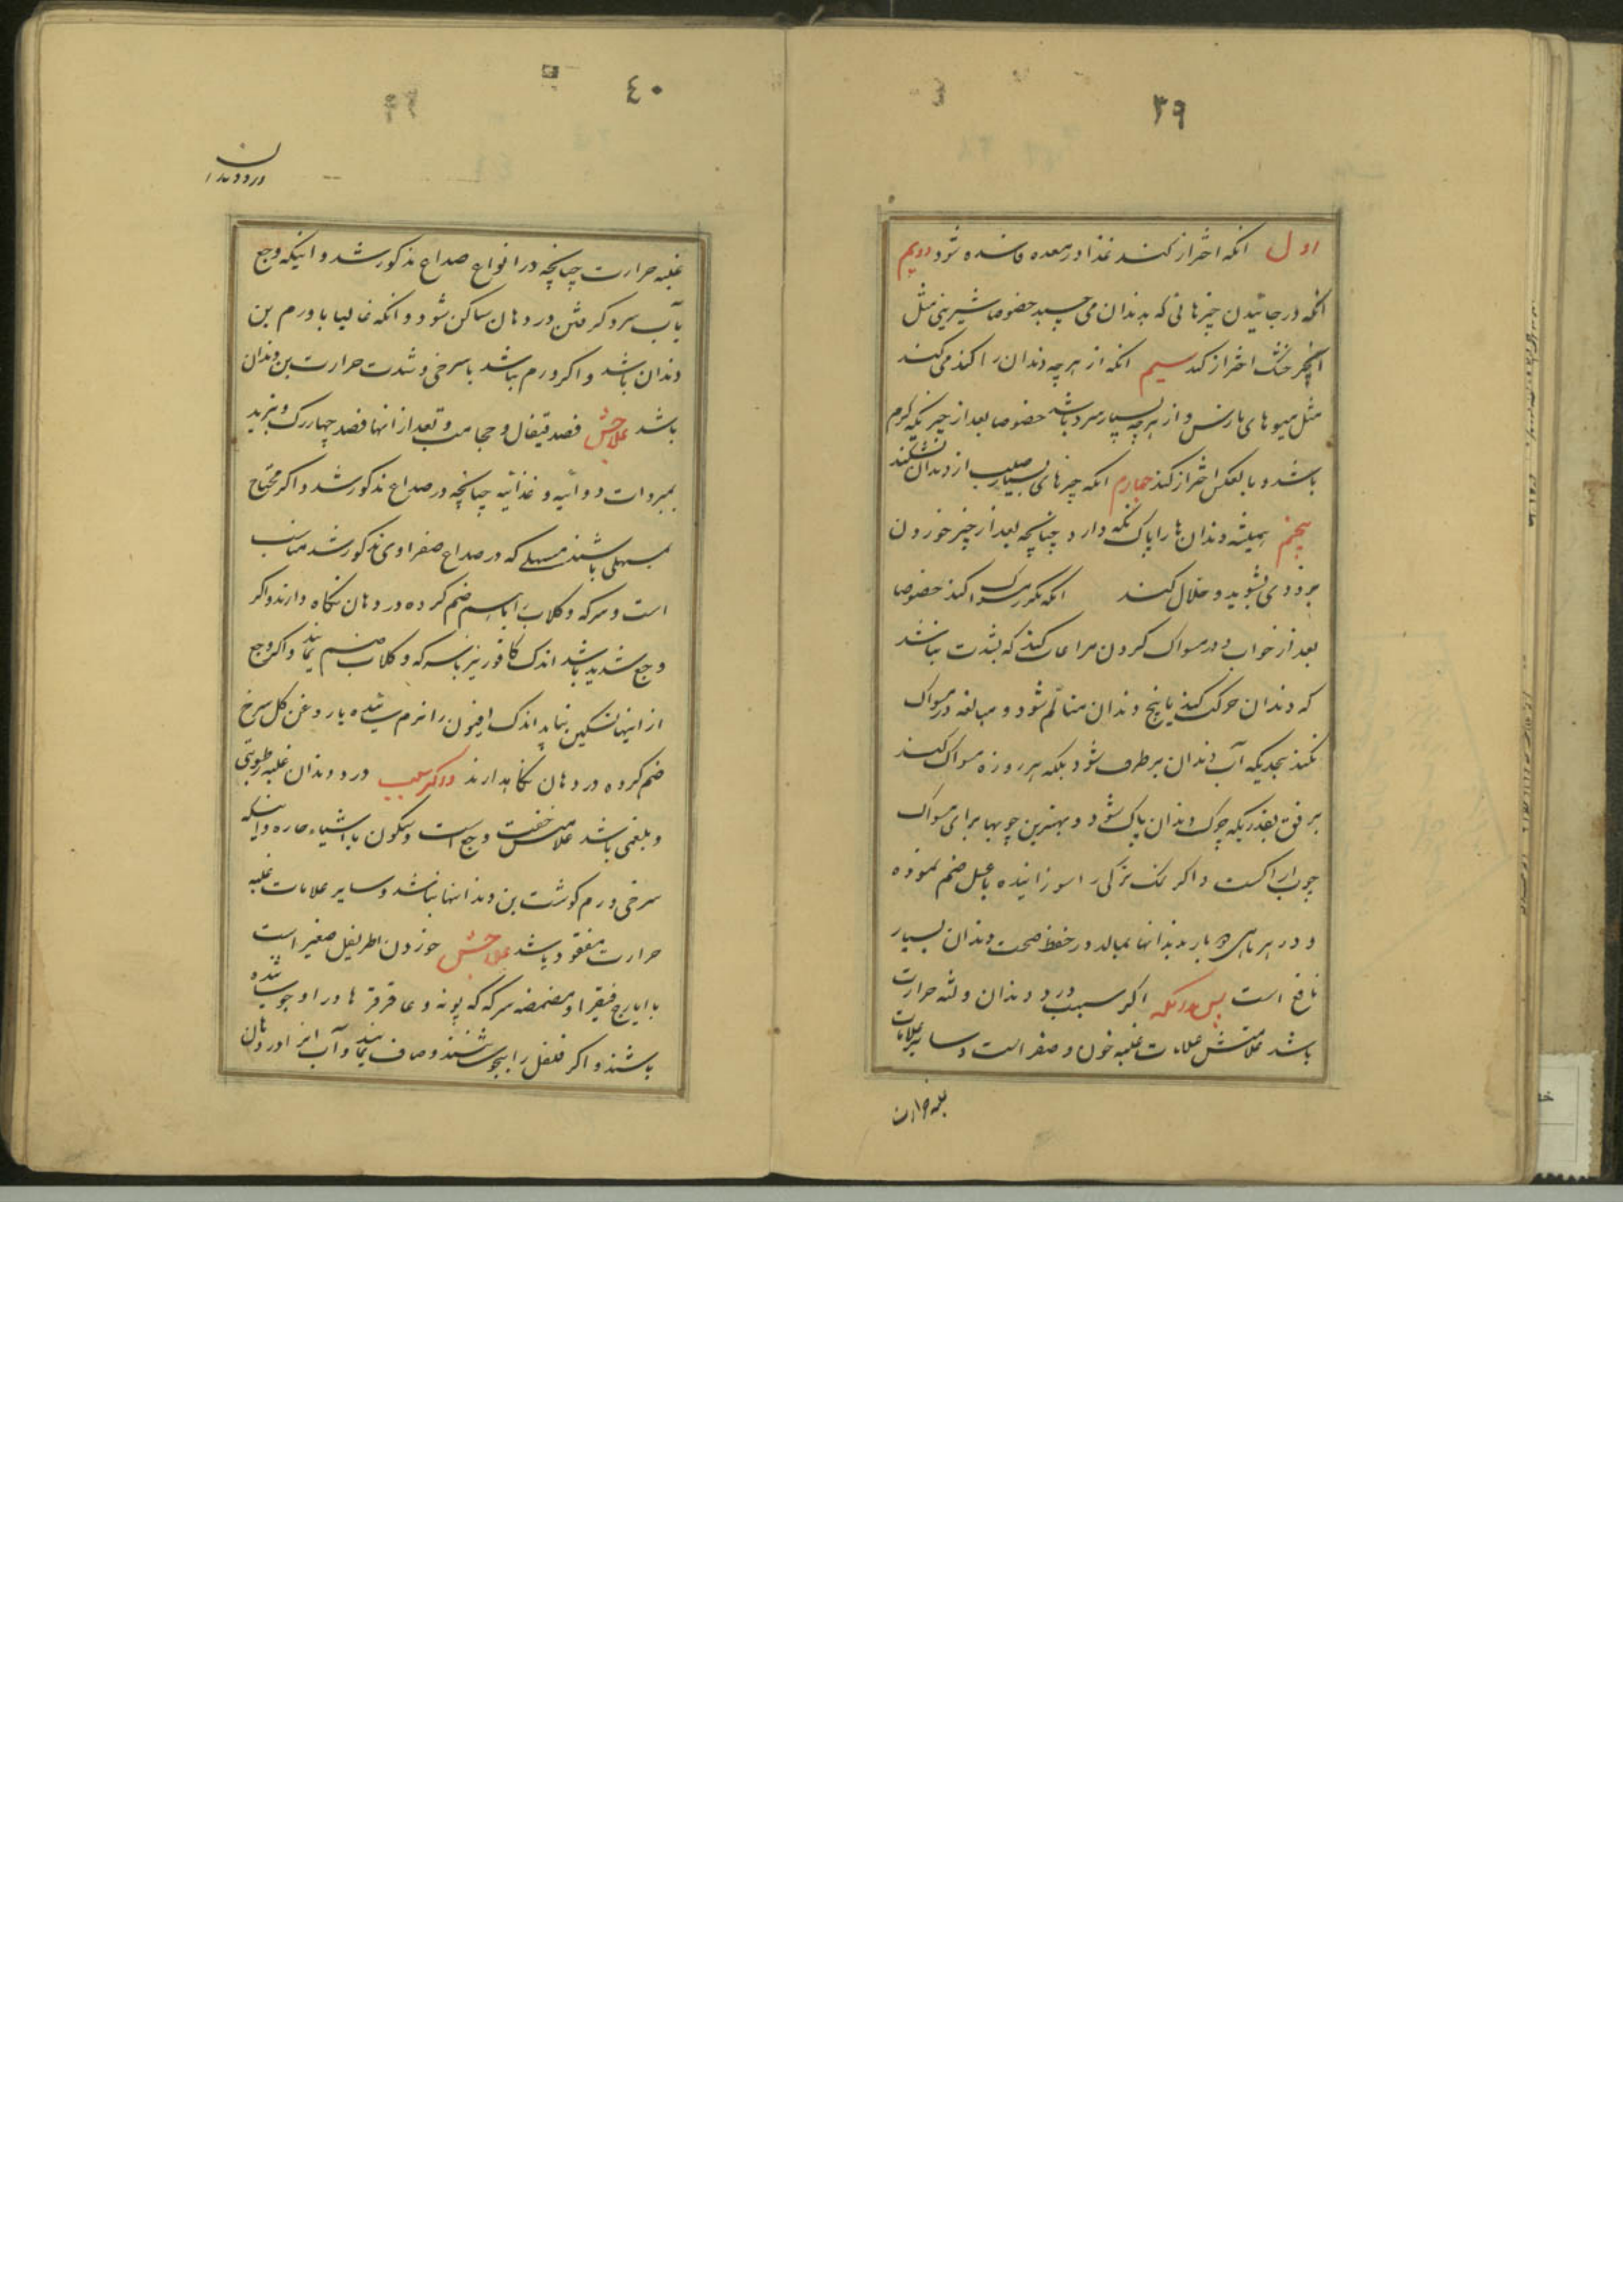 ۳۹
اول انکه احتراز کند غذا در معده فاسده شود دویم
انکه در خائیدن چیزهائی که بدندان می چسبد خصوصا شیرینی مثل
انجیر خشک احتراز کند سیم انکه از هرچه دندان را کند می کند
مثل میوهای نارس و از هرچه بسیار سرد باشد خصوصا بعد از چیزیکه گرم
باشد و بالعکس احتراز کند چهارم انکه چیزهای بسیار صلب از دندان نشکند
پنجم همیشه دندان ها را پاک نکه دارد چنانچه بعد از چیز خوردن
بزودی بشوید و خلال کند انکه مکرر مسواک کند خصوصا
بعد از خواب و در مسواک کردن مراعات کند که بشدت نباشد
که دندان حرکت کند یا بیخ دندان متالّم شود و مبالغه در مسواک
نکند بحدیکه آب دندان برطرف شود بلکه هر روزه مسواک کند
برفق بقدریکه چرک دندان پاک شود و بهترین چوبها برای مسواک
چوب اراکست و اکر نمک ترکی را سوزانیده با عسل ضم نموده
و در هر ماهی بار بدندانها بمالد در حفظ صحت دندان بسیار
نافع است پس بدانکه اکر سبب درد دندان و لثه حرارت
باشد علامتش علامات غلبه خون و صفراست و سایر علامات
غلبه حرارت
۴۰
درد دندان
غلبه حرارت چنانچه در انواع صداع مذکور شد و اینکه وجع
بآب سرد کرفتن در دهان ساکن شود و انکه غالبا با ورم بن
دندان باشد و اکر ورم نباشد با سرخی و شدت حرارت بن دندان
باشد علاجش فصد قیفال و حجامت و بعد از انها فصد چهاررک و تبرید
بمبردات دوائیه و غذائیه چنانچه در صداع مذکور شد و اکر محتاج
بمسهلی باشند مسهلی که در صداع صفراوی مذکور شد مناسب
است و سرکه و کلاب را باهم ضم کرده در دهان نکاه دارند و اکر
وجع شدید باشد اندک کافور نیز با سرکه و کلاب ضم نمایند و اکر وجع
از اینها تسکین نیابد اندک افیون را نرم سائیده با روغن کل سرخ
ضم کرده در دهان نکاهدارند و اکر سبب درد دندان غلبه رطوبتی
و بلغمی باشد علامتش خفت وجع است و سکون با اشیاء حاره و اینکه
سرخی و ورم کوشت بن دندانها نباشد و سایر علامات غلبه
حرارت مفقود باشد علاجش خوردن اطریفل صغیر است
با ایارج فیقرا و مضمضه سرکه که پونه و عاقرقرحا در او جوشانیده
باشند و اکر فلفل را بجوشانند و صاف نمایند و آب انرا در دهان